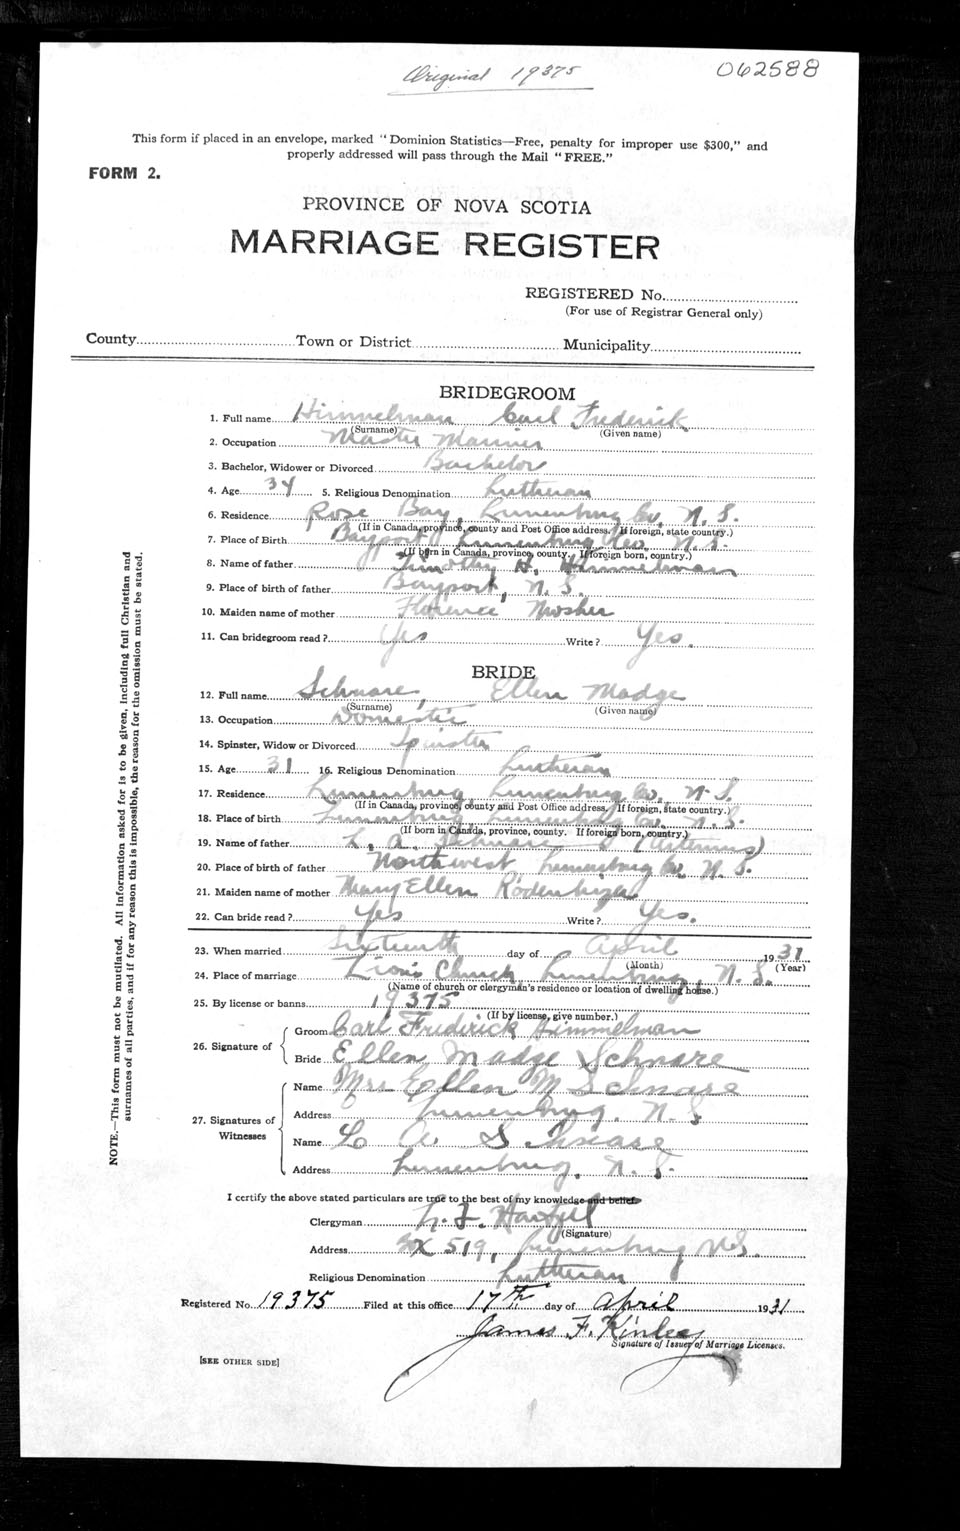 Original 19375
062588
This form if placed in an envelope, marked "Dominion Statistics—Free, penalty for improper use $300," and
properly addressed will pass through the Mail "FREE."
FORM 2.
PROVINCE OF NOVA SCOTIA
MARRIAGE REGISTER
REGISTERED No.
(For use of Registrar General only)
County Town or District Municipality
BRIDEGROOM
1. Full name Himmelman Carl Frederick
(Surname) (Given name)
2. Occupation Master Mariner
3. Bachelor, Widower or Divorced Bachelor
4. Age 34 5. Religious Denomination Lutheran
6. Residence Rose Bay, Lunenburg Co, N.S.
(If in Canada, province, county and Post Office address. If foreign, state country.)
7. Place of Birth Bayport Lunenburg Co. N.S.
(If born in Canada, province, county. If foreign born, country.)
8. Name of father Timothy H. Himmelman
9. Place of birth of father Bayport, N.S.
10. Maiden name of mother Florence Mosher
11. Can bridegroom read? Yes Write? Yes.
BRIDE
12. Full name Schnare, Ellen Madge
(Surname) (Given name)
13. Occupation Domestic
14. Spinster, Widow or Divorced Spinster
15. Age 31 16. Religious Denomination Lutheran
17. Residence Lunenburg Lunenburg Co, N.S.
(If in Canada, province, county and Post Office address. If foreign, state country.)
18. Place of birth Lunenburg Lunenburg Co. N.S.
(If born in Canada, province, county. If foreign born, country.)
19. Name of father L. A. Schnare (Artemus)
20. Place of birth of father Northwest Lunenburg Co, N.S.
21. Maiden name of mother Mary Ellen
22. Can bride read? Yes Write? Yes.
23. When married Sixteenth day of April 1931
(Month) (Year)
24. Place of marriage Zion's Church Lunenburg, N.S.
(Name of church or clergyman's residence or location of dwelling house.)
25. By license or banns 19375
(If by license, give number.)
26. Signature of
Groom Carl Frederick Himmelman
Bride Ellen Madge Schnare
27. Signatures of Witnesses
Name Mrs Ellen M Schnare
Address Lunenburg. N.S
Name L A Schnare
Address Lunenburg, N.S.
I certify the above stated particulars are true to the best of my knowledge and belief.
Clergyman
(Signature)
Address Box 519, Lunenburg N.S.
Religious Denomination Lutheran
Registered No. 19375 Filed at this office 17th day of April 1931
James F. Kinley
Signature of Issuer of Marriage Licenses.
[SEE OTHER SIDE]
NOTE.—This form must not be mutilated. All information asked for is to be given, including full Christian and
surnames of all parties, and if for any reason this is impossible, the reason for the omission must be stated.